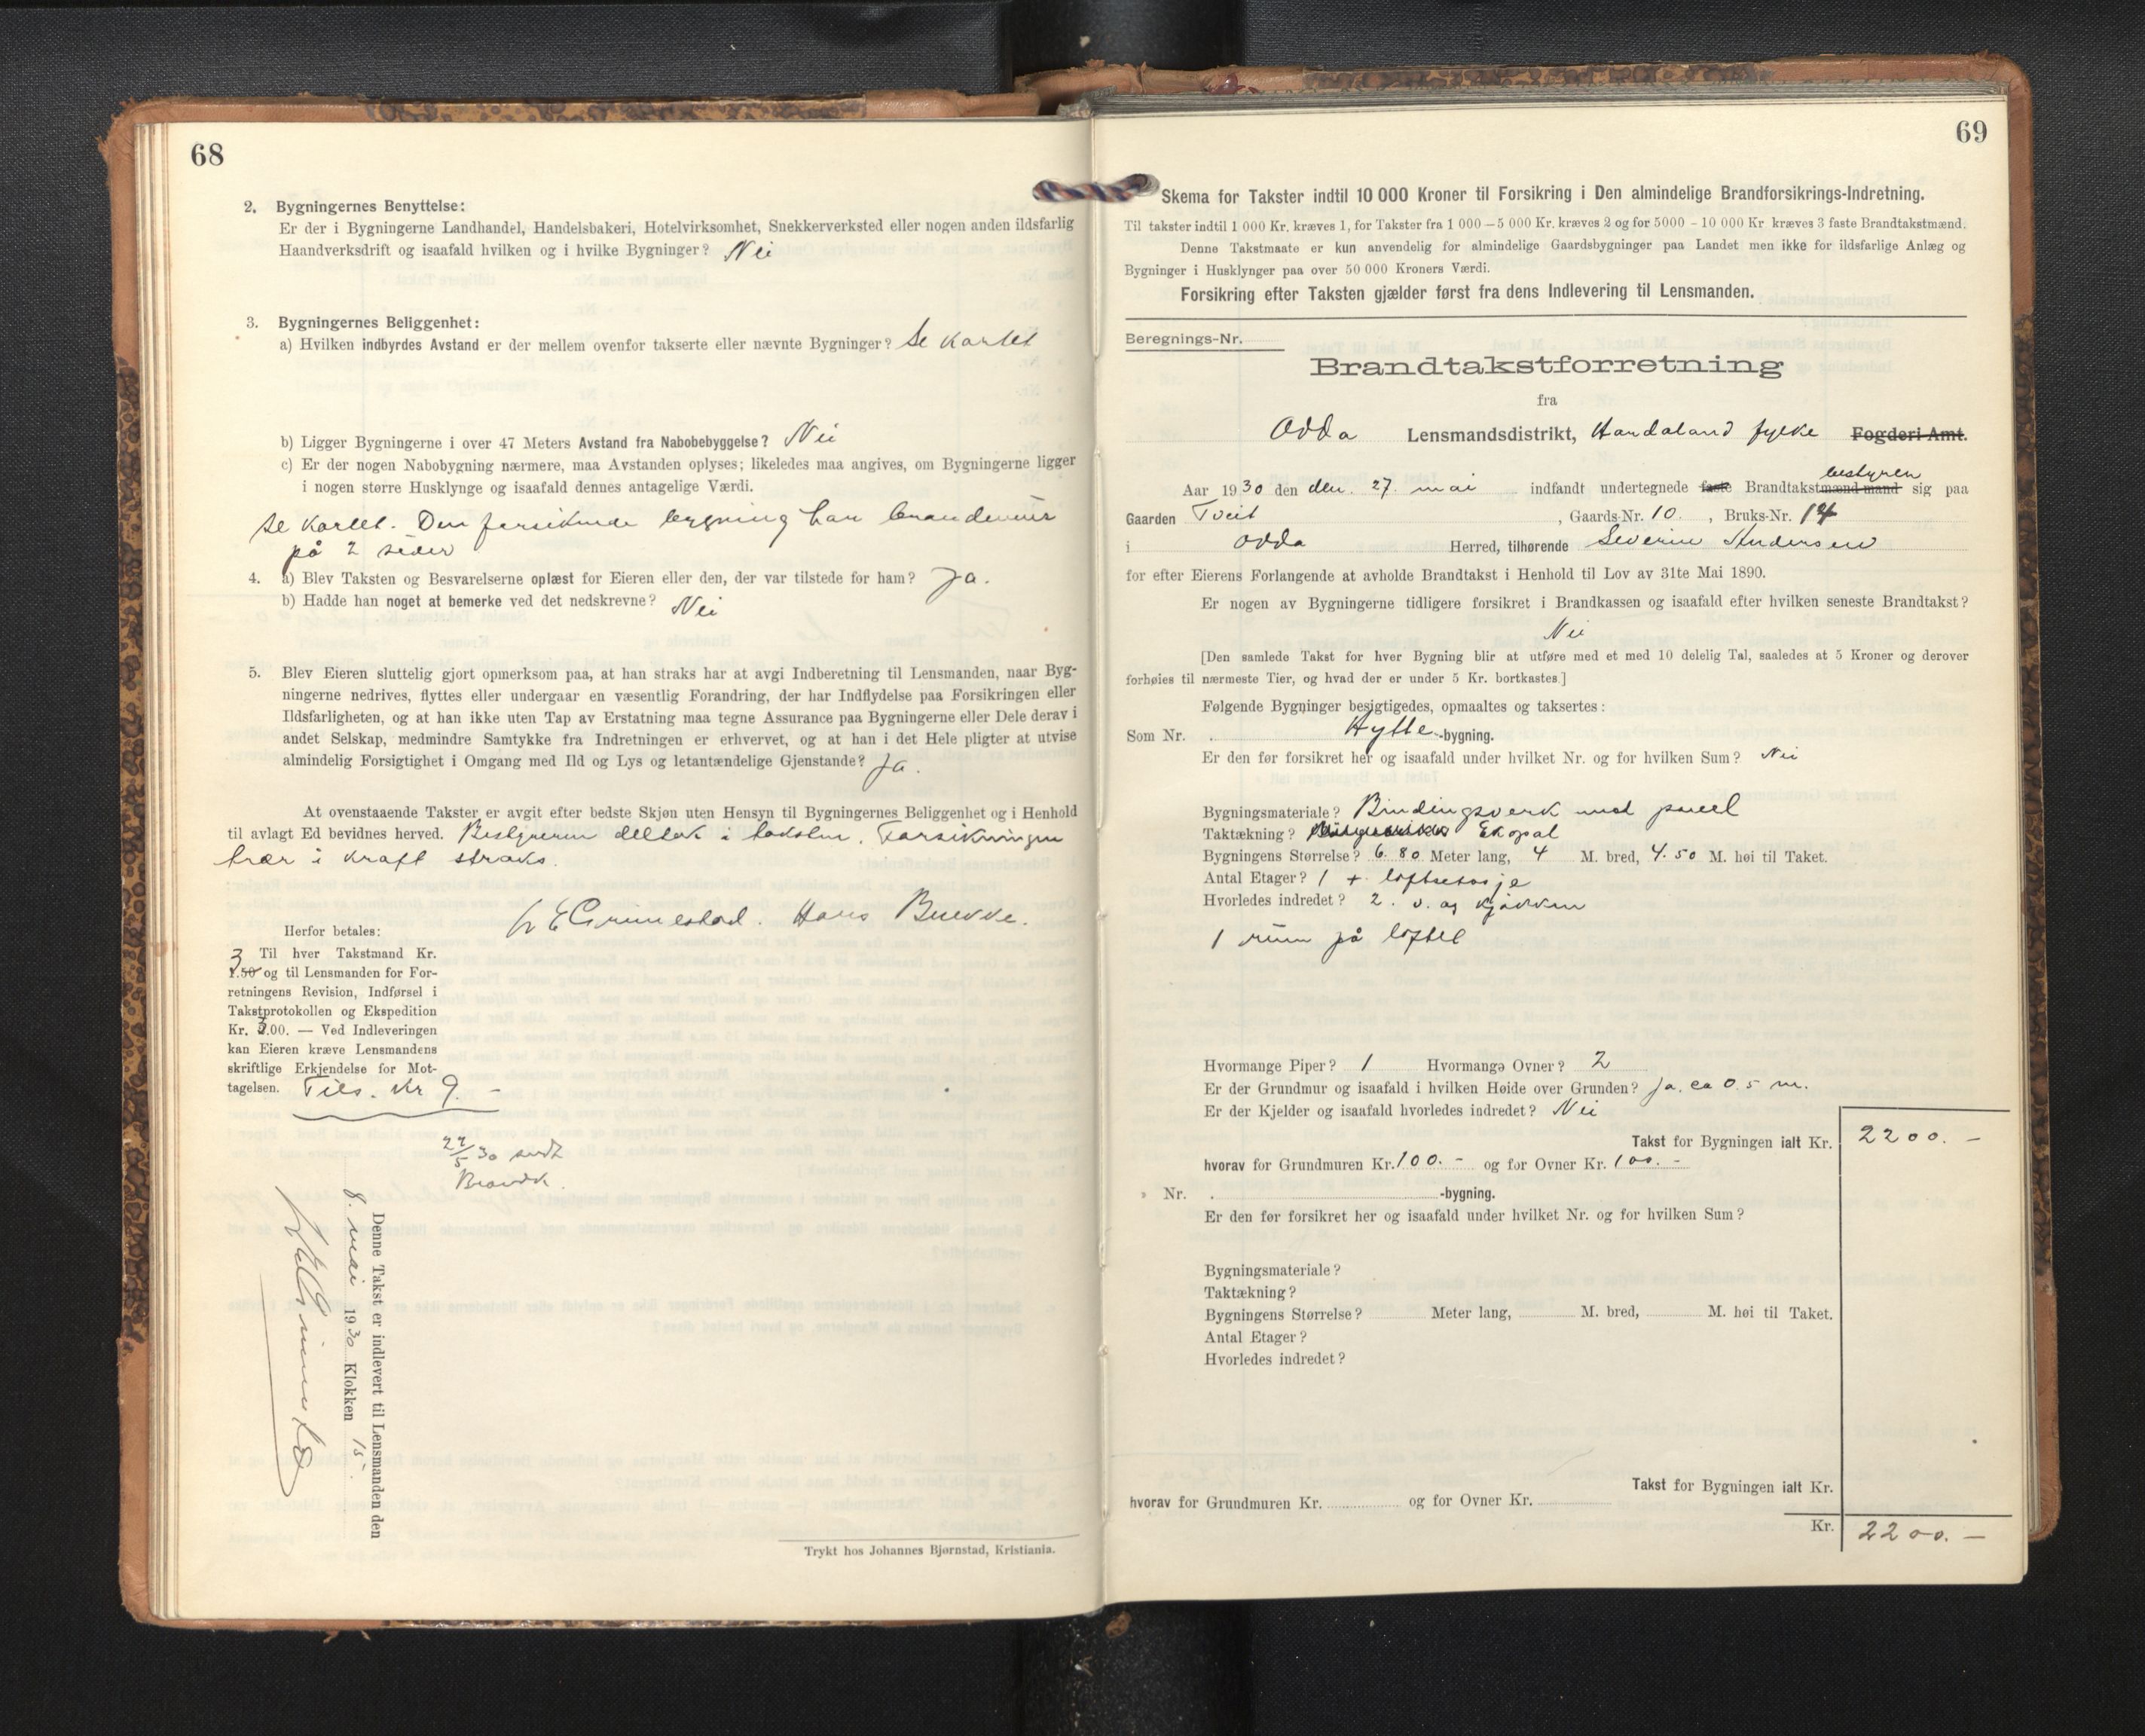 68
2. Bygningernes Benyttelse:
Er der i Bygningerne Landhandel, Handelsbakeri, Hotelvirksomhet, Snekkerverksted eller nogen anden ildsfarlig
Haandverksdrift og isaafald hvilken og i hvilke Bygninger? Nei
3. Bygningernes Beliggenhet:
a) Hvilken indbyrdes Avstand er der mellem ovenfor takserte eller nævnte Bygninger? Se kartet
b) Ligger Bygningerne i over 47 Meters Avstand fra Nabobebyggelse? Nei
c) Er der nogen Nabobygning nærmere, maa Avstanden oplyses; likeledes maa angives, om Bygningerne ligger
i nogen større Husklynge og isaafald dennes antagelige Værdi.
Se kartet. Den forsikrede bygning har brandmur
på 2 sider
4. a) Blev Taksten og Besvarelserne oplæst for Eieren eller den, der var tilstede for ham? Ja.
b) Hadde han noget at bemerke ved det nedskrevne? Nei
5. Blev Eieren sluttelig gjort opmerksom paa, at han straks har at avgi Indberetning til Lensmanden, naar Byg-
ningerne nedrives, flyttes eller undergaar en væsentlig Forandring, der har Indflydelse paa Forsikringen eller
Ildsfarligheten, og at han ikke uten Tap av Erstatning maa tegne Assurance paa Bygningerne eller Dele derav i
andet Selskap, medmindre Samtykke fra Indretningen er erhvervet, og at han i det Hele pligter at utvise
almindelig Forsigtighet i Omgang med Ild og Lys og letantændelige Gjenstande? Ja.
At ovenstaaende Takster er avgit efter bedste Skjøn uten Hensyn til Bygningernes Beliggenhet og i Henhold
til avlagt Ed bevidnes herved. Bestyreren deltok i taksten. Forsikringen
trær i kraft straks.
Grimestad. Hans
Herfor betales:
3
Til hver Takstmand Kr.
1.50 og til Lensmanden for For-
retningens Revision, Indførsel i
Takstprotokollen og Ekspedition
Kr. 3.00. — Ved Indleveringen
kan Eieren kræve Lensmandens
skriftlige Erkjendelse for Mot-
tagelsen. Tils. Kr 9. -
27/5 30 sendt
Brandk.
Denne Takst er indlevert til Lensmanden den
8. mai 1930 Klokken 15.
Trykt hos Johannes Bjørnstad, Kristiania.
69
Skema for Takster indtil 10 000 Kroner til Forsikring i Den almindelige Brandforsikrings-Indretning.
Til takster indtil 1 000 Kr. kræves 1, for Takster fra 1 000 — 5 000 Kr. kræves 2 og for 5000 - 10 000 Kr kræves 3 faste Brandtakstmænd.
Denne Takstmaate er kun anvendelig for almindelige Gaardsbygninger paa Landet men ikke for ildsfarlige Anlæg og
Bygninger i Husklynger paa over 50 000 Kroners Værdi.
Forsikring efter Taksten gjælder først fra dens Indlevering til Lensmanden.
Beregnings-Nr.
Brandtakstforretning
fra
Odda Lensmandsdistrikt, Hordaland fylke Fogderi Amt.
bestyrer
Aar 1930 den den. 27. mai indfandt undertegnede faste Brandtakstmænd mand sig paa
Gaarden Tveit, Gaards-Nr. 10., Bruks-Nr. 14
i Odda Herred, tilhørende Severin Andersen
for efter Eierens Forlangende at avholde Brandtakst i Henhold til Lov av 31te Mai 1890.
Er nogen av Bygningerne tidligere forsikret i Brandkassen og isaafald efter hvilken seneste Brandtakst?
Nei
[Den samlede Takst for hver Bygning blir at utføre med et med 10 delelig Tal, saaledes at 5 Kroner og derover
forhøies til nærmeste Tier, og hvad der er under 5 Kr. bortkastes.]
Følgende Bygninger besigtigedes, opmaaltes og taksertes:
Som Nr. . Hytte-bygning.
Er den før forsikret her og isaafald under hvilket Nr. og for hvilken Sum? Nei
Bygningsmateriale? Bindingsverk med panel
Taktækning? Ekopal
Bygningens Størrelse? 6.80 Meter lang, 4 M. bred, 4.50 M. høi til Taket.
Antal Etager? 1 + loftsetasje
Hvorledes indredet? 2. v. og kjøkken
1 rum på loftet
Hvormange Piper? 1 Hvormange Ovner? 2
Er der Grundmur og isaafald i hvilken Høide over Grunden? Ja. ca 0.5 m.
Er der Kjelder og isaafald hvorledes indredet? Nei
Takst for Bygningen ialt Kr. 2200. -
hvorav for Grundmuren Kr. 100. - og for Ovner Kr. 100. -
» Nr. . -bygning.
Er den før forsikret her og isaafald under hvilket Nr. og for hvilken Sum?
Bygningsmateriale?
Taktækning?
Bygningens Størrelse? Meter lang, M. bred, M. høi til Taket.
Antal Etager?
Hvorledes indredet?
Takst for Bygningen ialt Kr.
hvorav for Grundmuren Kr. og for Ovner Kr.
Kr. 2200. -